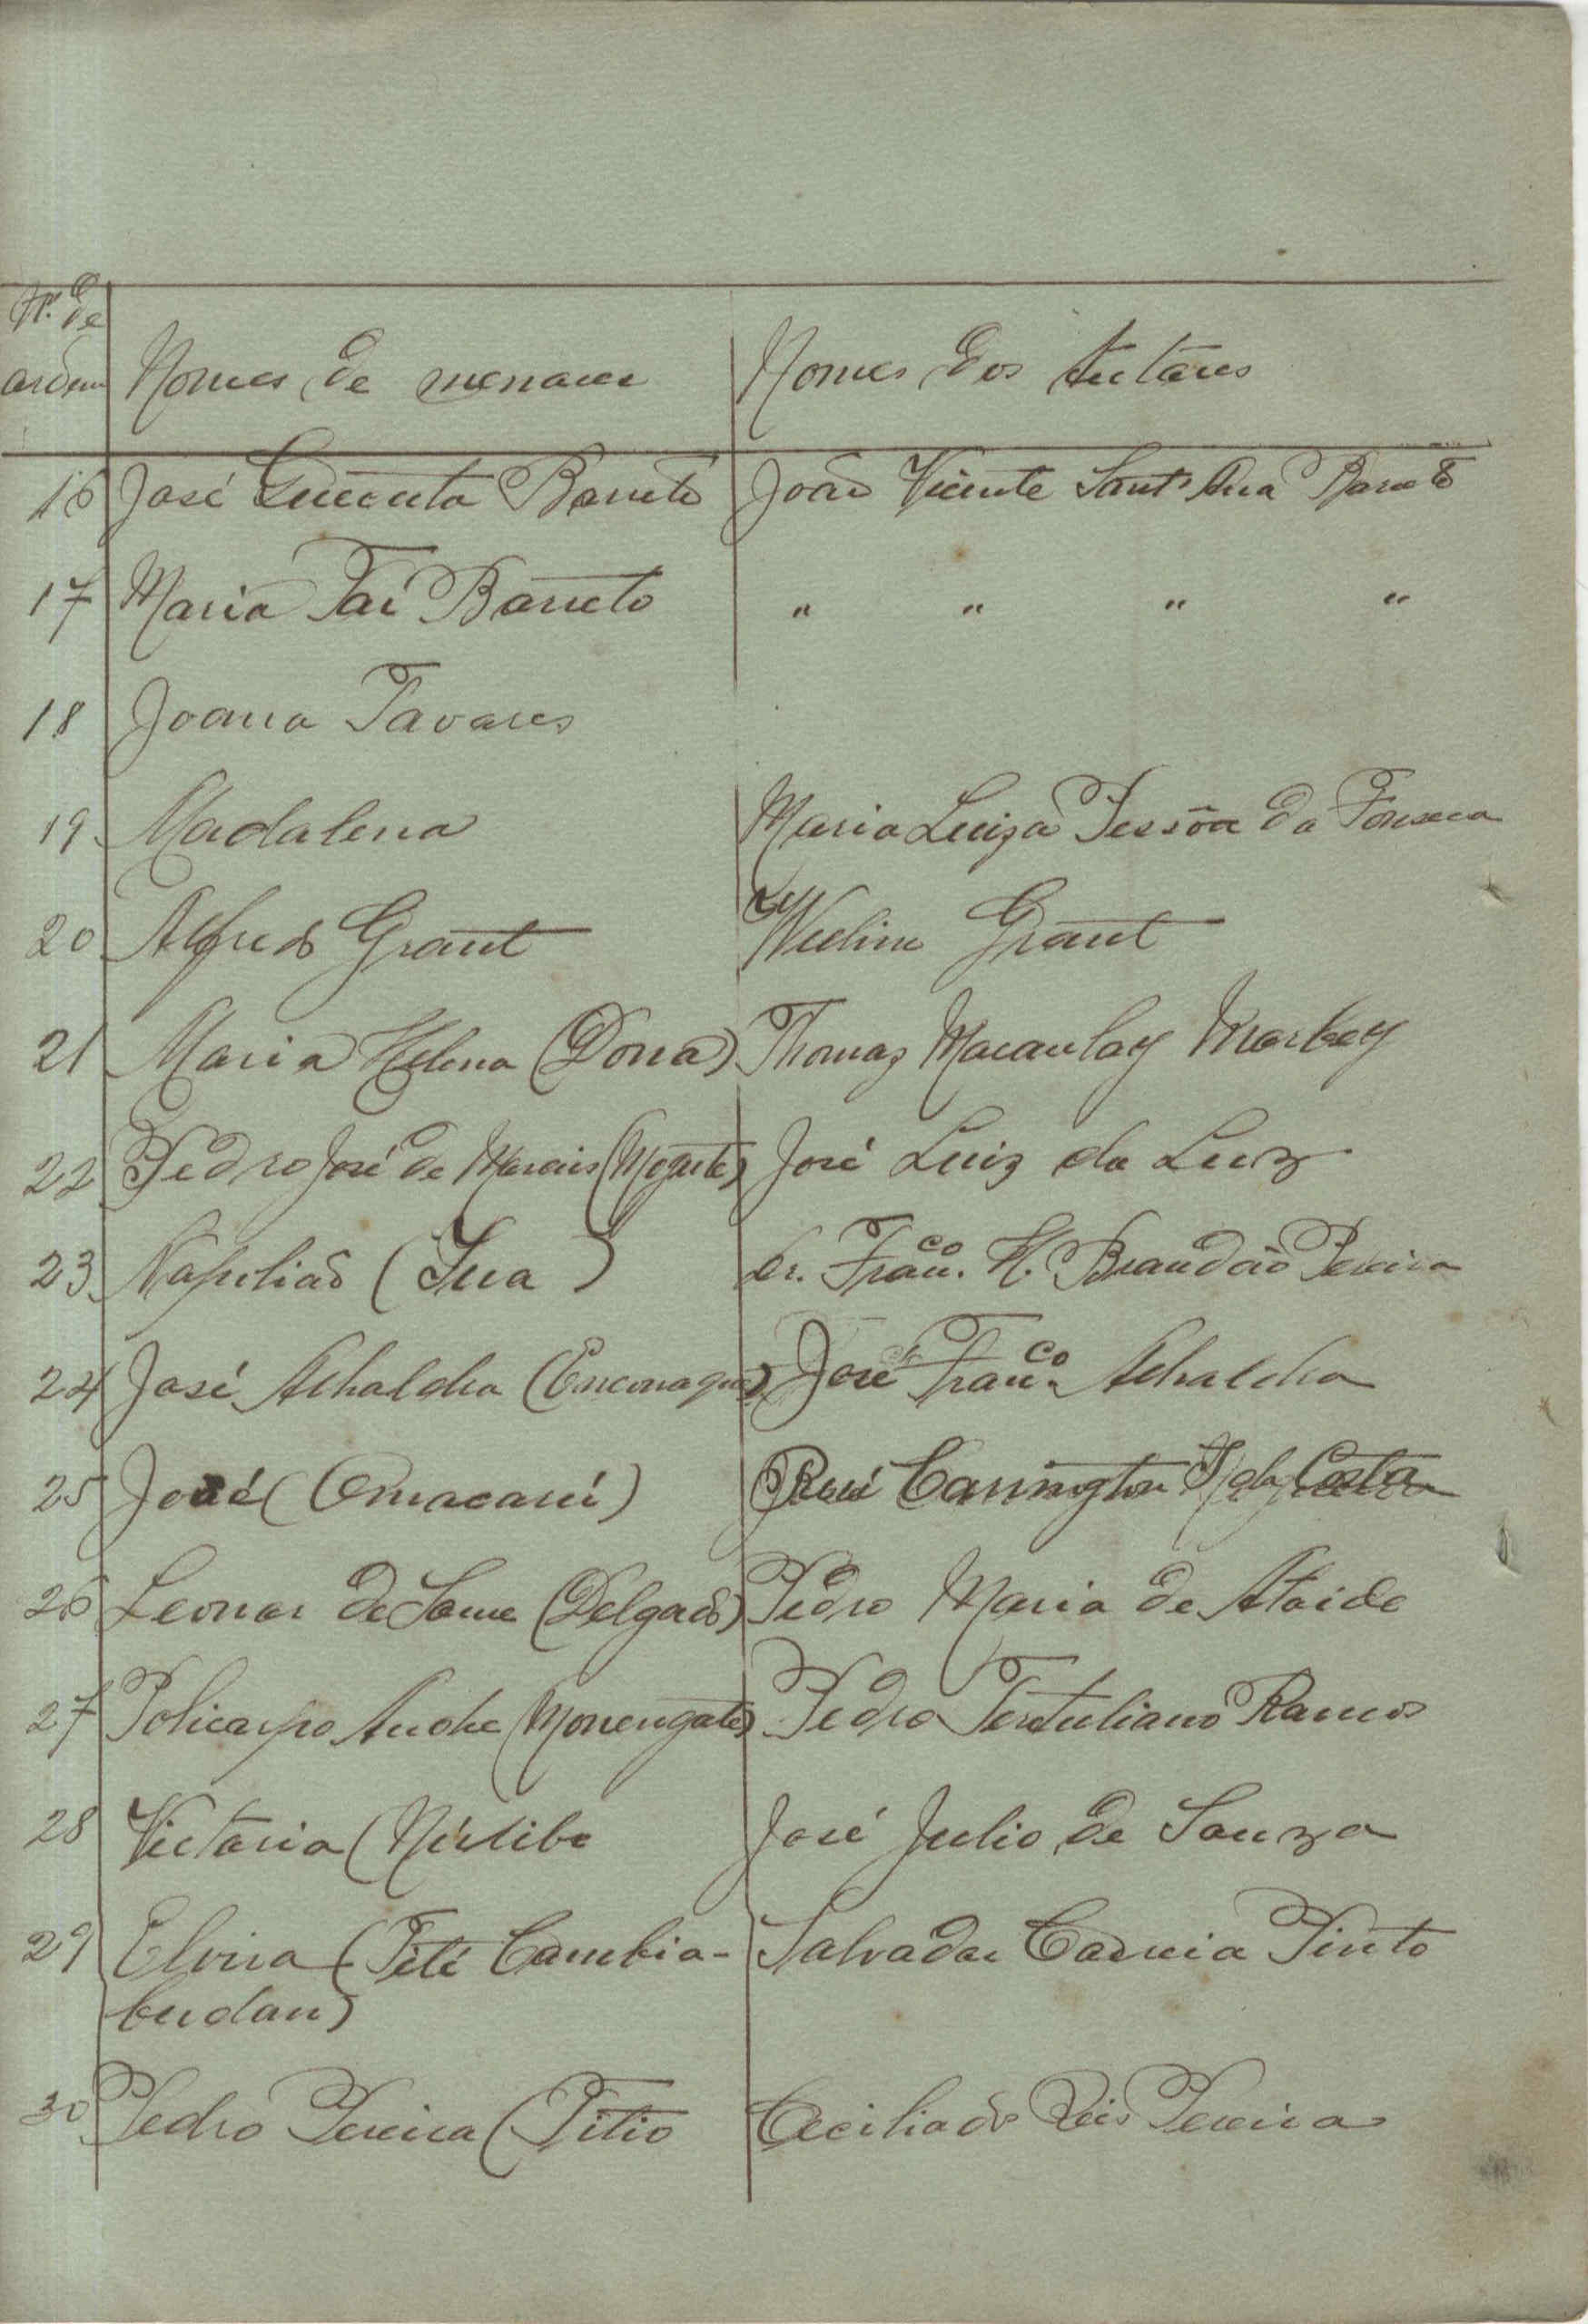 N.º de
ordem Nomes de menores Nomes dos Tutores
16 José Barreto João Vicente Sant'Ana Barreto
17 Maria Tai Barreto " " " "
18 Joana Tavares
19 Madalena Maria Luiza Pessôa da Fonseca
20 Alfredo Grant Grant
21 Maria Helena (Dona) Thomaz Macaulay Morbey
22 Pedro José de Morais José Luiz da Luz
23 Napolião ( ) Dr. Franco. H. Brandão Pereira
24 José José Franco.
25 José (Omacací) Carrington da Costa
26 Leonor de (Delgado) Pedro Maria de Ataide
27 Policarpo Pedro Tertuliano Ramos
28 Victoria ( José Julio de Souza
29 Elvira (Pité Cambia- Salvador Correia Pinto
budan)
30 Pedro Pereira (Pitio Cecilia dos Reis Pereira